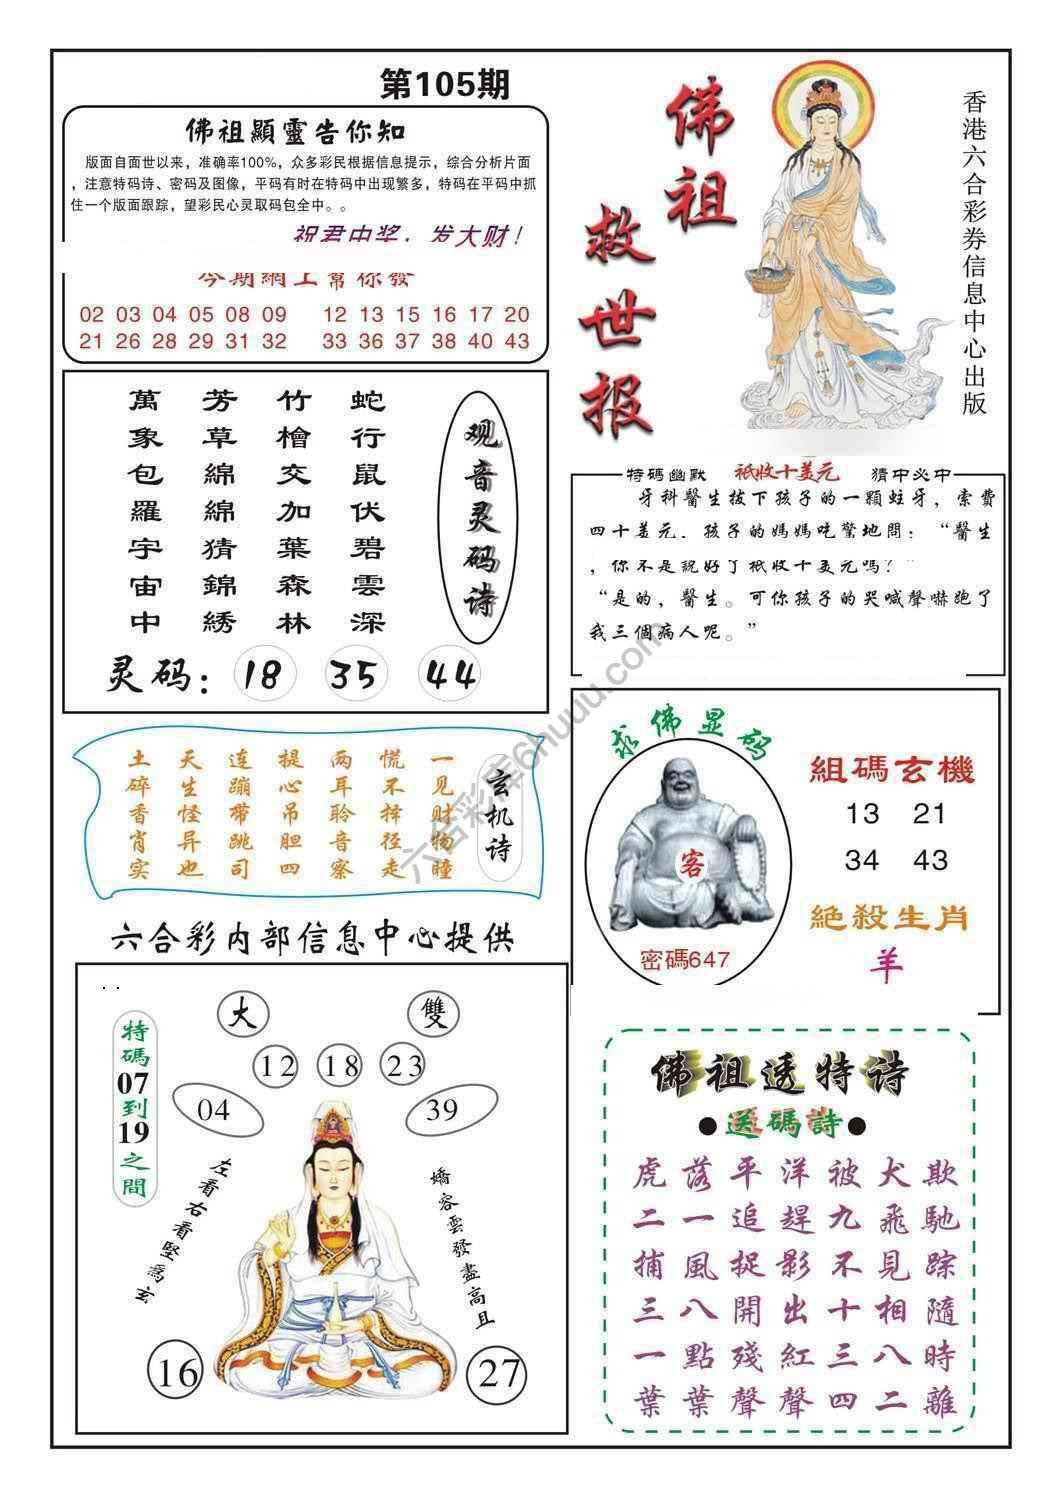 第105期
佛祖顯靈告你知
版面自面世以来，准确率100%，众多彩民根据信息提示，综合分析片面
，注意特码诗、密码及图像，平码有时在特码中出现繁多，特码在平码中抓
住一个版面跟踪，望彩民心灵取码包全中。。
祝君中奖，发大财！
今期網上幫你發
02 03 04 05 08 09 12 13 15 16 17 20
21 26 28 29 31 32 33 36 37 38 40 43
佛祖
救世报
香港六合彩券信息中心出版
观音灵码诗
蛇行鼠伏碧雲深
竹檜交加葉森林
芳草綿綿猜錦綉
萬象包羅宇宙中
灵码：18 35 44
特碼幽默 祇收十美元 猜中必中
牙科醫生拔下孩子的一顆蛀牙，索費
四十美元．孩子的媽媽吃驚地問：“醫生
，你不是説好了祇收十美元嗎？”
“是的，醫生。可你孩子的哭喊聲嚇跑了
我三個病人呢。”
玄机诗
一见财物瞳
慌不择径走
两耳聆音察
提心吊胆四
连蹦带跳司
天生怪异也
土碎香肖实
求佛显码
客
密碼647
組碼玄機
13 21
34 43
絶殺生肖
羊
六合彩内部信息中心提供
特碼07到19之間
大 雙
12 18 23
04 39
左看右看堅爲玄
嬌容雲發盡高且
16 27
佛祖透特诗
●送碼詩●
虎落平洋被犬欺
二一追趕九飛馳
捕風捉影不見踪
三八開出十相隨
一點殘紅三八時
葉葉聲聲四二離
六合彩库6huuu.com